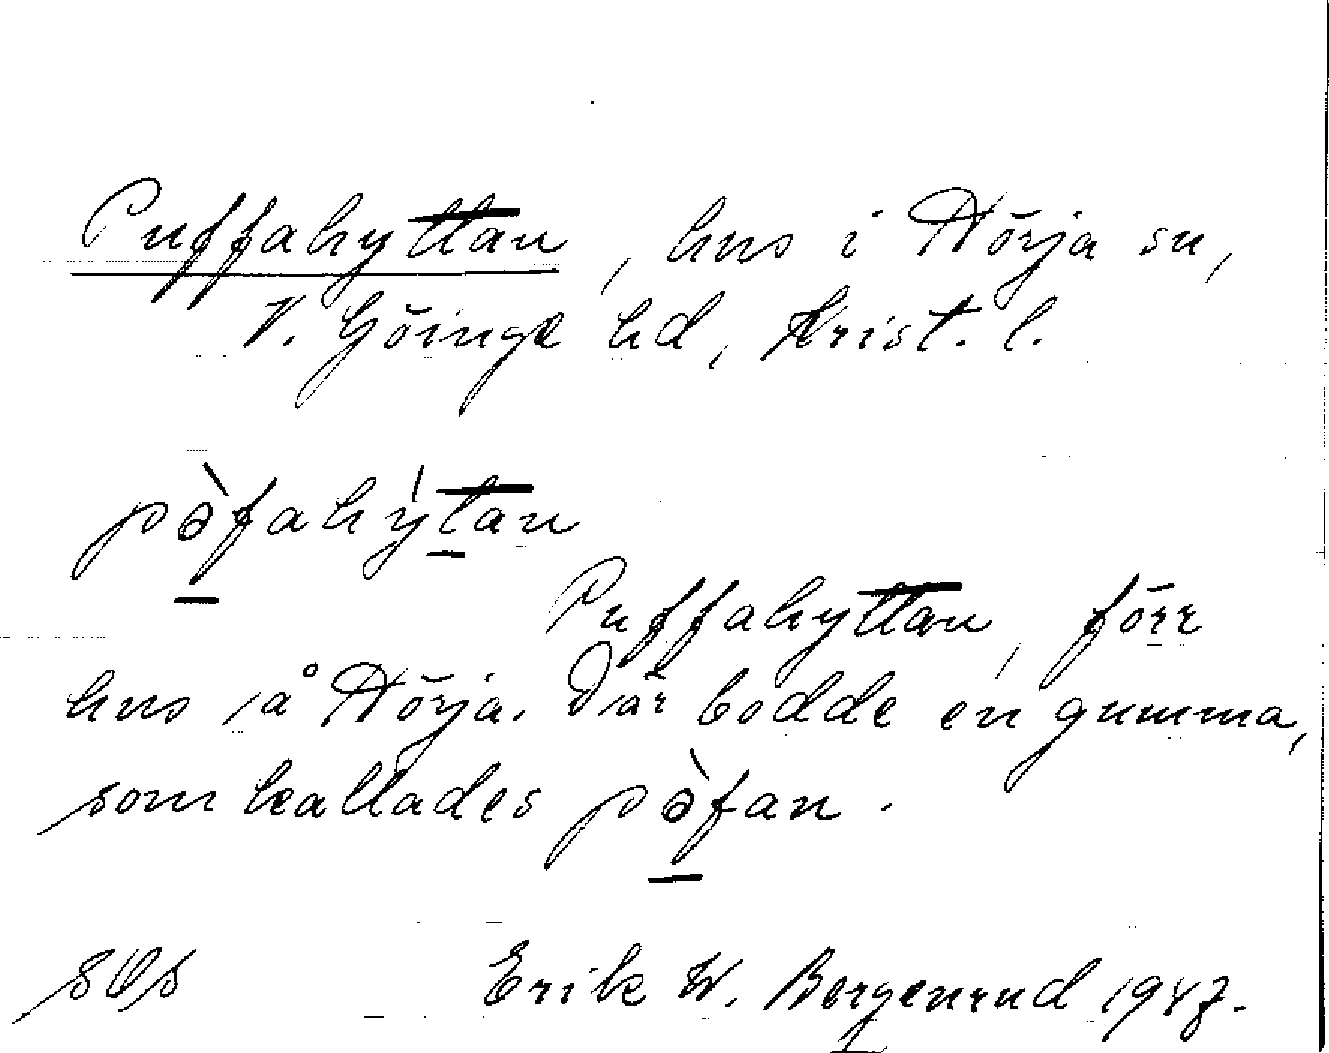 Puffahyttan, hus i Nörja sn,
V. Göinge hd, Krist. l.
pə̀fahy̍tan
Puffahyttan, förr
hus på Nörja. Där bodde en gumma,
som kallades pə̀fan.
Erik W. Bergenrud 1947.